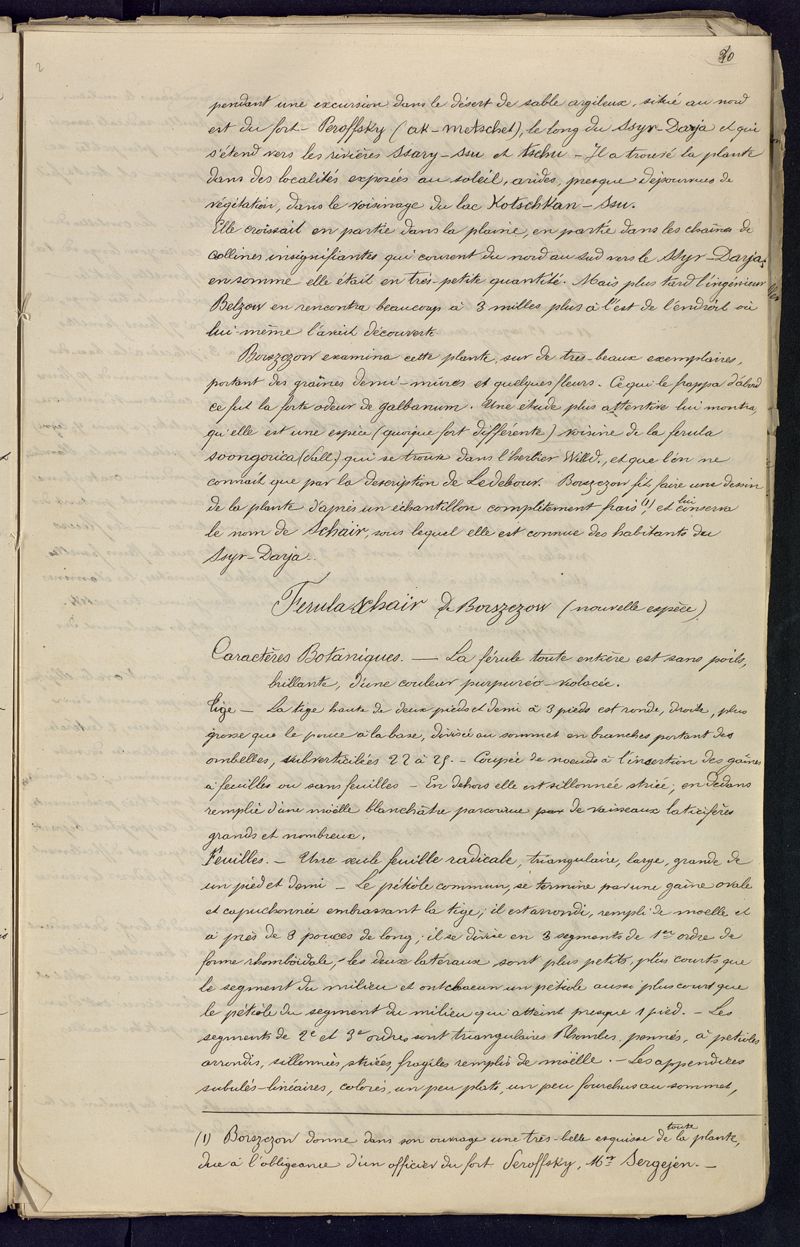 20
2
pendant une excursion dans le désert de sable argileux, situé au nord
est du fort Peroffsky (ak-metschet), le long du Ssyr-Darja et qui
s'étend vers les rivières Ssary-ssu et tschu - Il a trouvé la plante
dans des localités exposées au soleil, arides, presque dépourvues de
végétation, dans le voisinage du lac Kotschkan-ssu.
Elle croissait en partie dans la plaine, en partie dans les chaînes de
collines insignifiantes qui courent du nord au sud vers le Ssyr-Darja,
en somme elle était en très-petite quantité. Mais plus tard l'ingénieur
Belzow en rencontra beaucoup à 3 milles plus à l'est de l'endroit où
lui-même l'avait découverte
Borszczow examina cette plante, sur de très-beaux exemplaires,
portant des graines demi-mûres et quelques fleurs. Ce qui le frappa d'abord
ce fut la forte odeur de galbanum. Une étude plus attentive lui montra,
qu'elle est une espèce (quoique fort différente) voisine de la ferula
soongorica (Pall.) qui se trouve dans l'herbier Willd., et que l'on ne
connait que par la description de Ledebour. Borszczow fit faire une dessin
de la plante d'après un échantillon complètement frais (1) et lui conserva
le nom de Schaïr, sous lequel elle est connue des habitants du
Ssyr-Darja.
Ferula Schaïr de Borszczow (nouvelle espèce)
Caractères Botaniques. — La férule toute entière est sans poils,
brillante, d'une couleur purpuréo-violacée.
Tige - La tige haute de deux pieds et demi à 3 pieds est ronde, droite, plus
grosse que le pouce à la base, divisée au sommet en branches portant des
ombelles, subverticilées 22 à 25. - Coupée de noeuds à l'insertion des gaines
à feuilles ou sans feuilles - En dehors elle est sillonnée striée; en dedans
remplie d'une moëlle blanchâtre parcourue par de vaisseaux laticifères
grands et nombreux.
Feuilles. - Une seule feuille radicale, triangulaire, large, grande de
un pied et demi - Le pétiole commun, se termine par une gaine ovale
et capuchonnée embrassant la tige; il est arrondi, rempli de moelle et
a près de 3 pouces de long; il se divise en 3 segments de 1er ordre de
forme rhomboïdale, les deux latéraux sont plus petits, plus courts que
le segment du milieu et ont chacun un pétiole aussi plus court que
le pétiole du segment du milieu qui atteint presque 1 pied. - Les
segments de 2e et 3e ordres sont triangulaires Rhombés, pennés, à pétioles
arrondis, sillonnés, striées fragiles remplis de moëlle. - Les appendices
subulés-linéaires, colorés, un peu plats, un peu fourchus au sommet,
(1) Borszczow donne dans son ouvrage une très-belle esquisse de toute la plante,
due à l'obligeance d'un officier du fort Peroffsky, Mr Sergejen. -